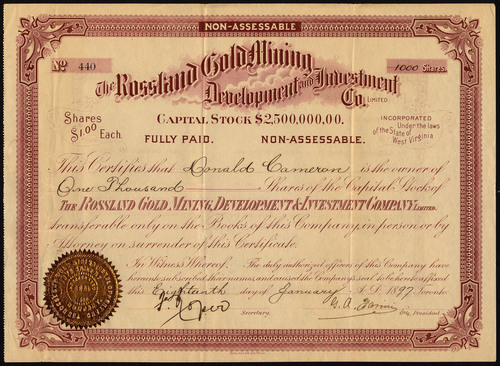 NON-ASSESSABLE
No 440
1000 Shares.
The Rossland Gold Mining
Development and Investment
Co. LIMITED
CAPITAL STOCK $2,500,000.00.
Shares $1.00 Each.
FULLY PAID. NON-ASSESSABLE.
INCORPORATED
Under the laws
of the State of
West Virginia
This Certifies that Donald Cameron is the owner of
One Thousand Shares of the Capital Stock of
THE ROSSLAND GOLD, MINING, DEVELOPMENT & INVESTMENT COMPANY, LIMITED.
transferable only on the Books of this Company, in person or by
Attorney on surrender of this Certificate.
In Witness Whereof, The duly authorized officers of this Company have
hereunto subscribed their names, and caused the Company's seal to be hereto affixed
this Eighteenth day of January A.D. 1897. Toronto.
Secretary.
Vice President.